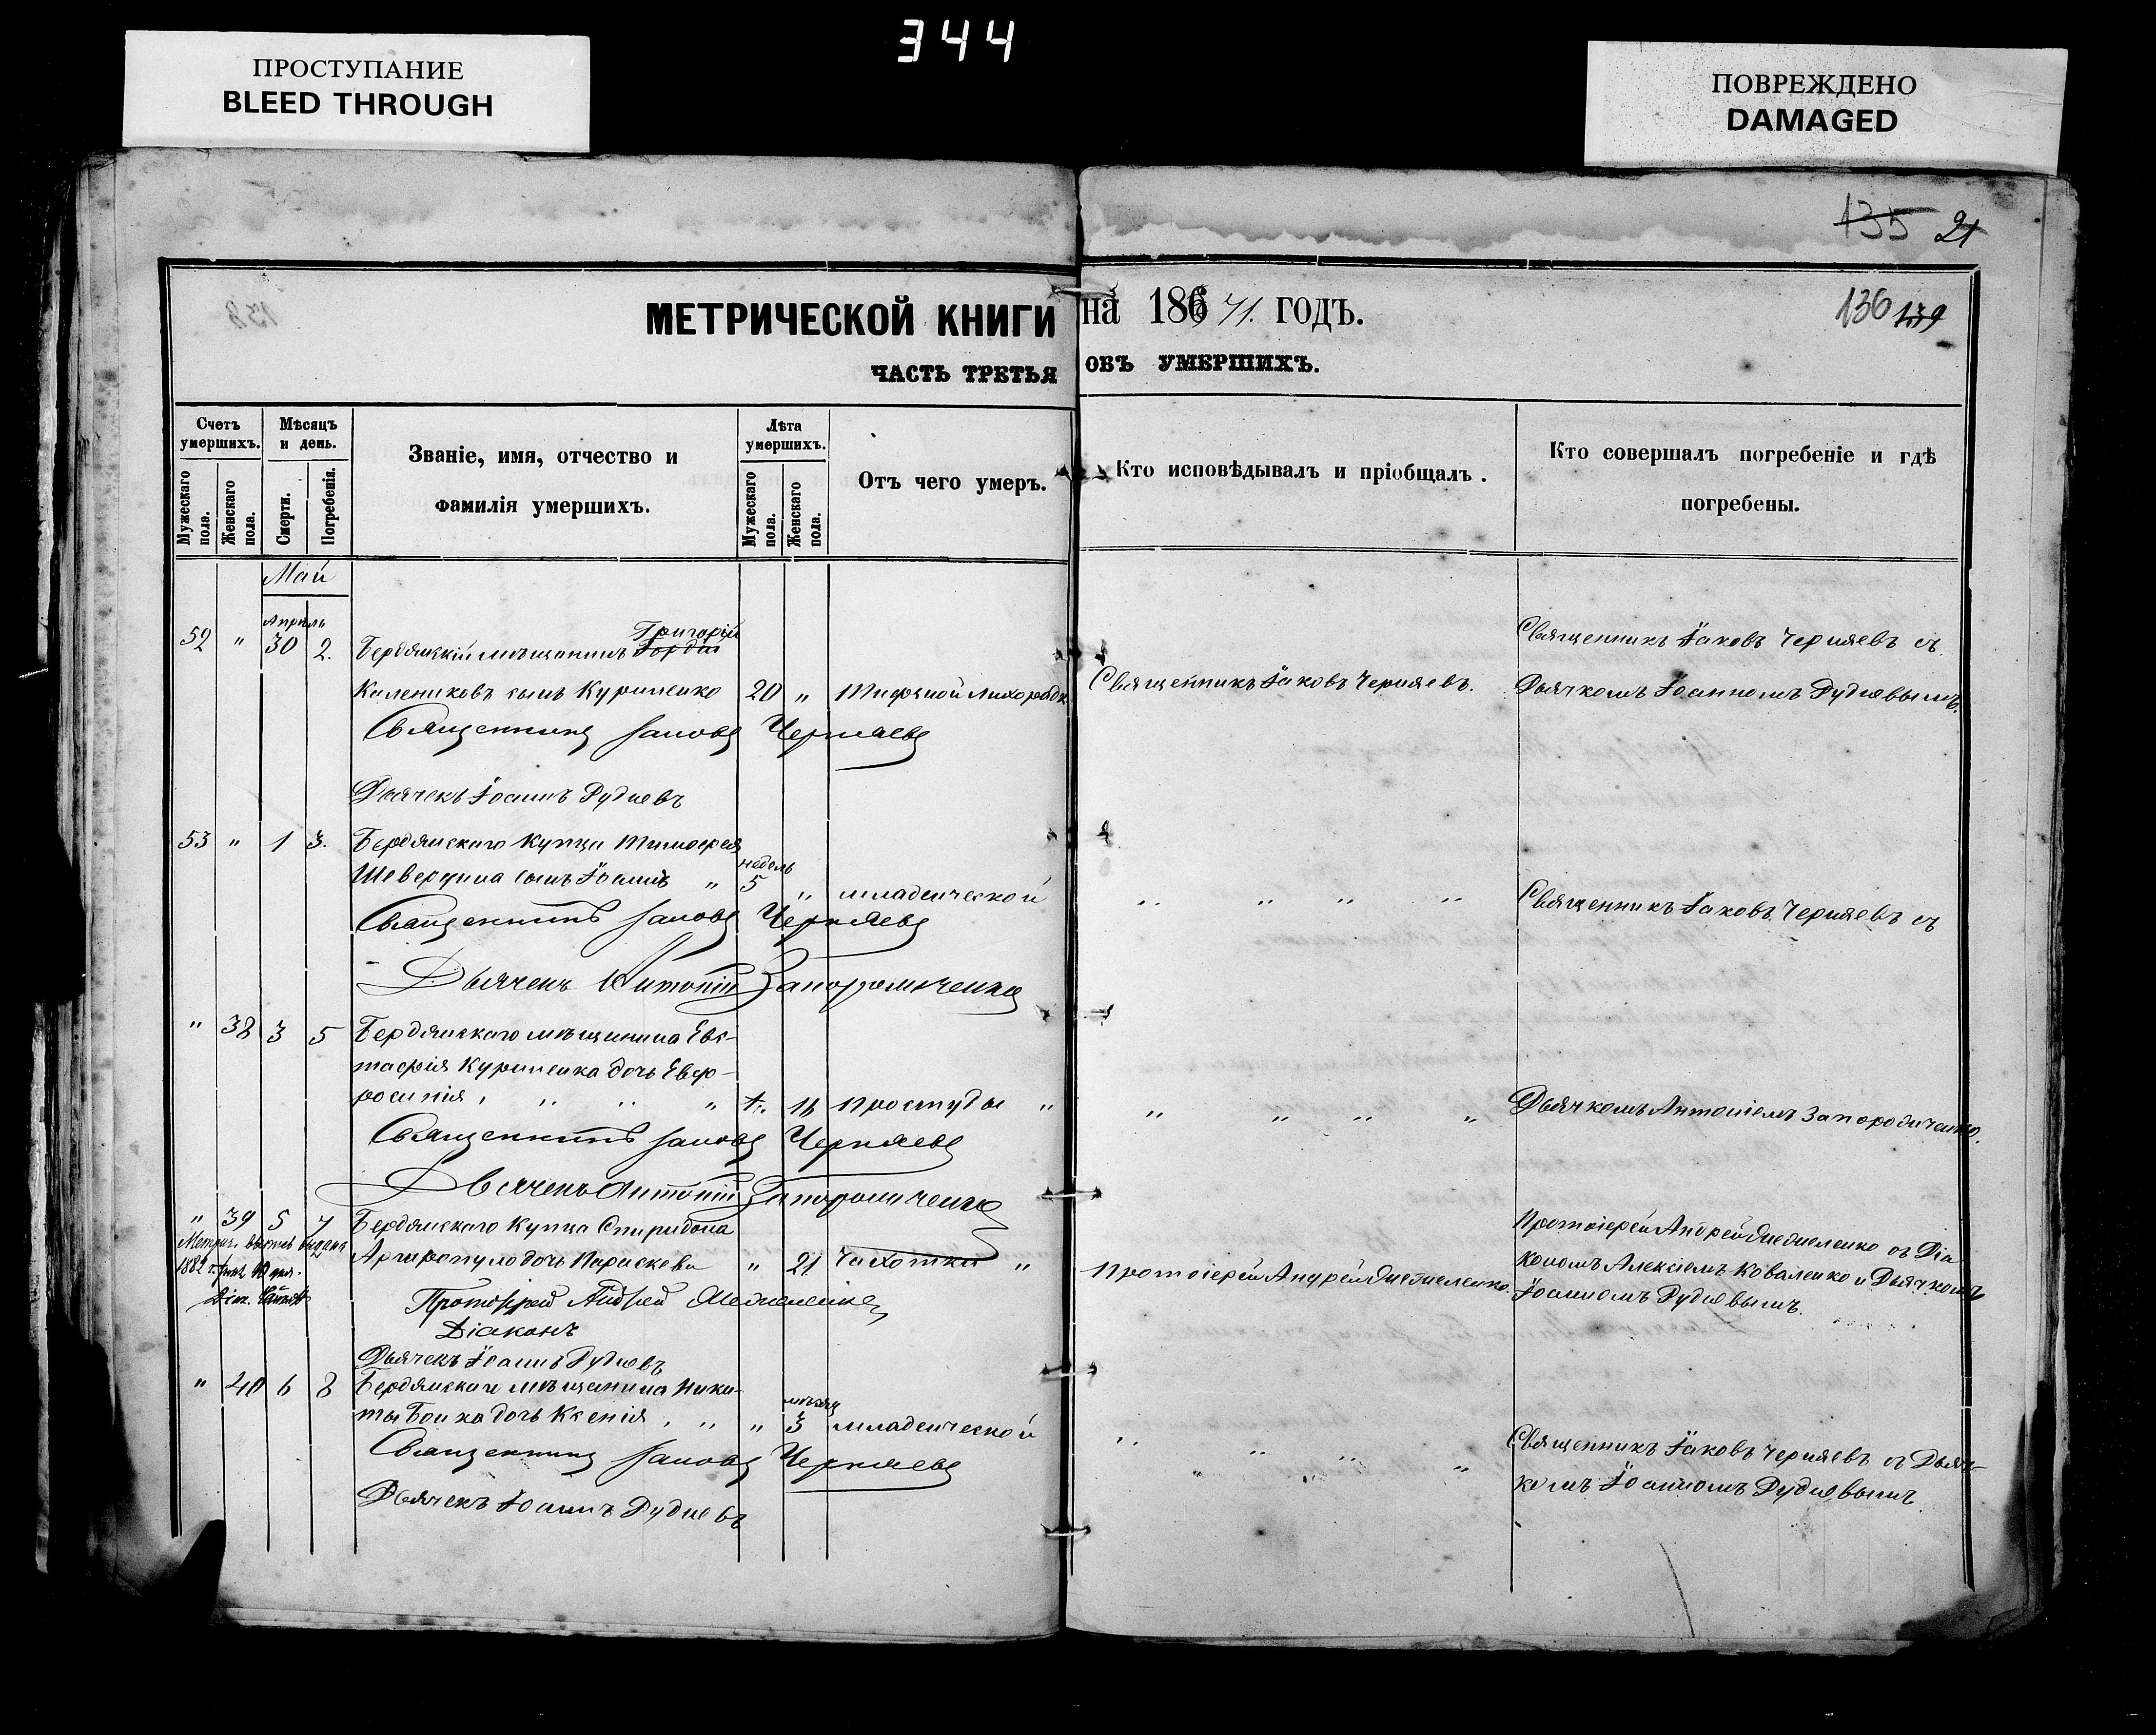 344
ПРОСТУПАНИЕ
BLEED THROUGH
ПОВРЕЖДЕНО
DAMAGED
135 21
136 139
МЕТРИЧЕСКОЙ КНИГИ на 186 71. ГОДЪ.
ЧАСТЬ ТРЕТЬЯ ОБЪ УМЕРШИХЪ.
Счетъ умершихъ.
Мужескаго пола.
Женскаго пола.
Мѣсяцъ и день.
Смерти.
Погребенія.
Званіе, имя, отчество и
фамилія умершихъ.
Лѣта умершихъ.
Мужескаго пола.
Женскаго пола.
Отъ чего умеръ.
Кто исповѣдывалъ и пріобщалъ.
Кто совершалъ погребеніе и гдѣ
погребены.
Май
Апрѣль
Григорій
52 " 30 2. Бердянскій мѣщанинъ Гордій
Калениковъ сынъ Куриленко 20 " Тифзной лихорадк
Священникъ Іаковъ Черняевъ.
Священникъ Іаковъ Черняевъ съ
Дьячкомъ Іоанномъ Рудневымъ.
Священникъ Іаковъ Черняевъ
Дьячекъ Іоаннъ Рудневъ
53 " 1 3. Бердянскаго Купца Тимофея
недель
сынъ Іоаннъ " 5 " младенческой
" " " " Священникъ Іаковъ Черняевъ съ
Священникъ Іаковъ Черняевъ
Дьячекъ Антоній
" 38 3 5 Бердянскаго мѣщанина Евс-
тафія Куриленка дочь Евф-
росинія " " " " простуды "
" " " " Дьячкомъ Антоніемъ
Священникъ Іаковъ Черняевъ
Дьячекъ Антоній
" 39 5 7 Бердянскаго Купца Спиридона
Аргиропуло дочь Параскева " 21 чахотки "
Метрич. выпись выдана
1882 г.
Протоіерей Андрей
Протоіерей Андрей съ Діа
кономъ Алексіемъ Коваленко и Дьячкомъ
Іоанномъ Рудневымъ.
Протоіерей Андрей
Діаконъ
Дьячекъ Іоаннъ Рудневъ
" 40 6 8 Бердянскаго мѣщанина Ники-
мѣсяц
ты Бойка дочь Ксенія " " " 3 младенческой
" " " " Священникъ Іаковъ Черняевъ съ Дьяч-
комъ Іоанномъ Рудневымъ
Священникъ Іаковъ Черняевъ
Дьячекъ Іоаннъ Рудневъ